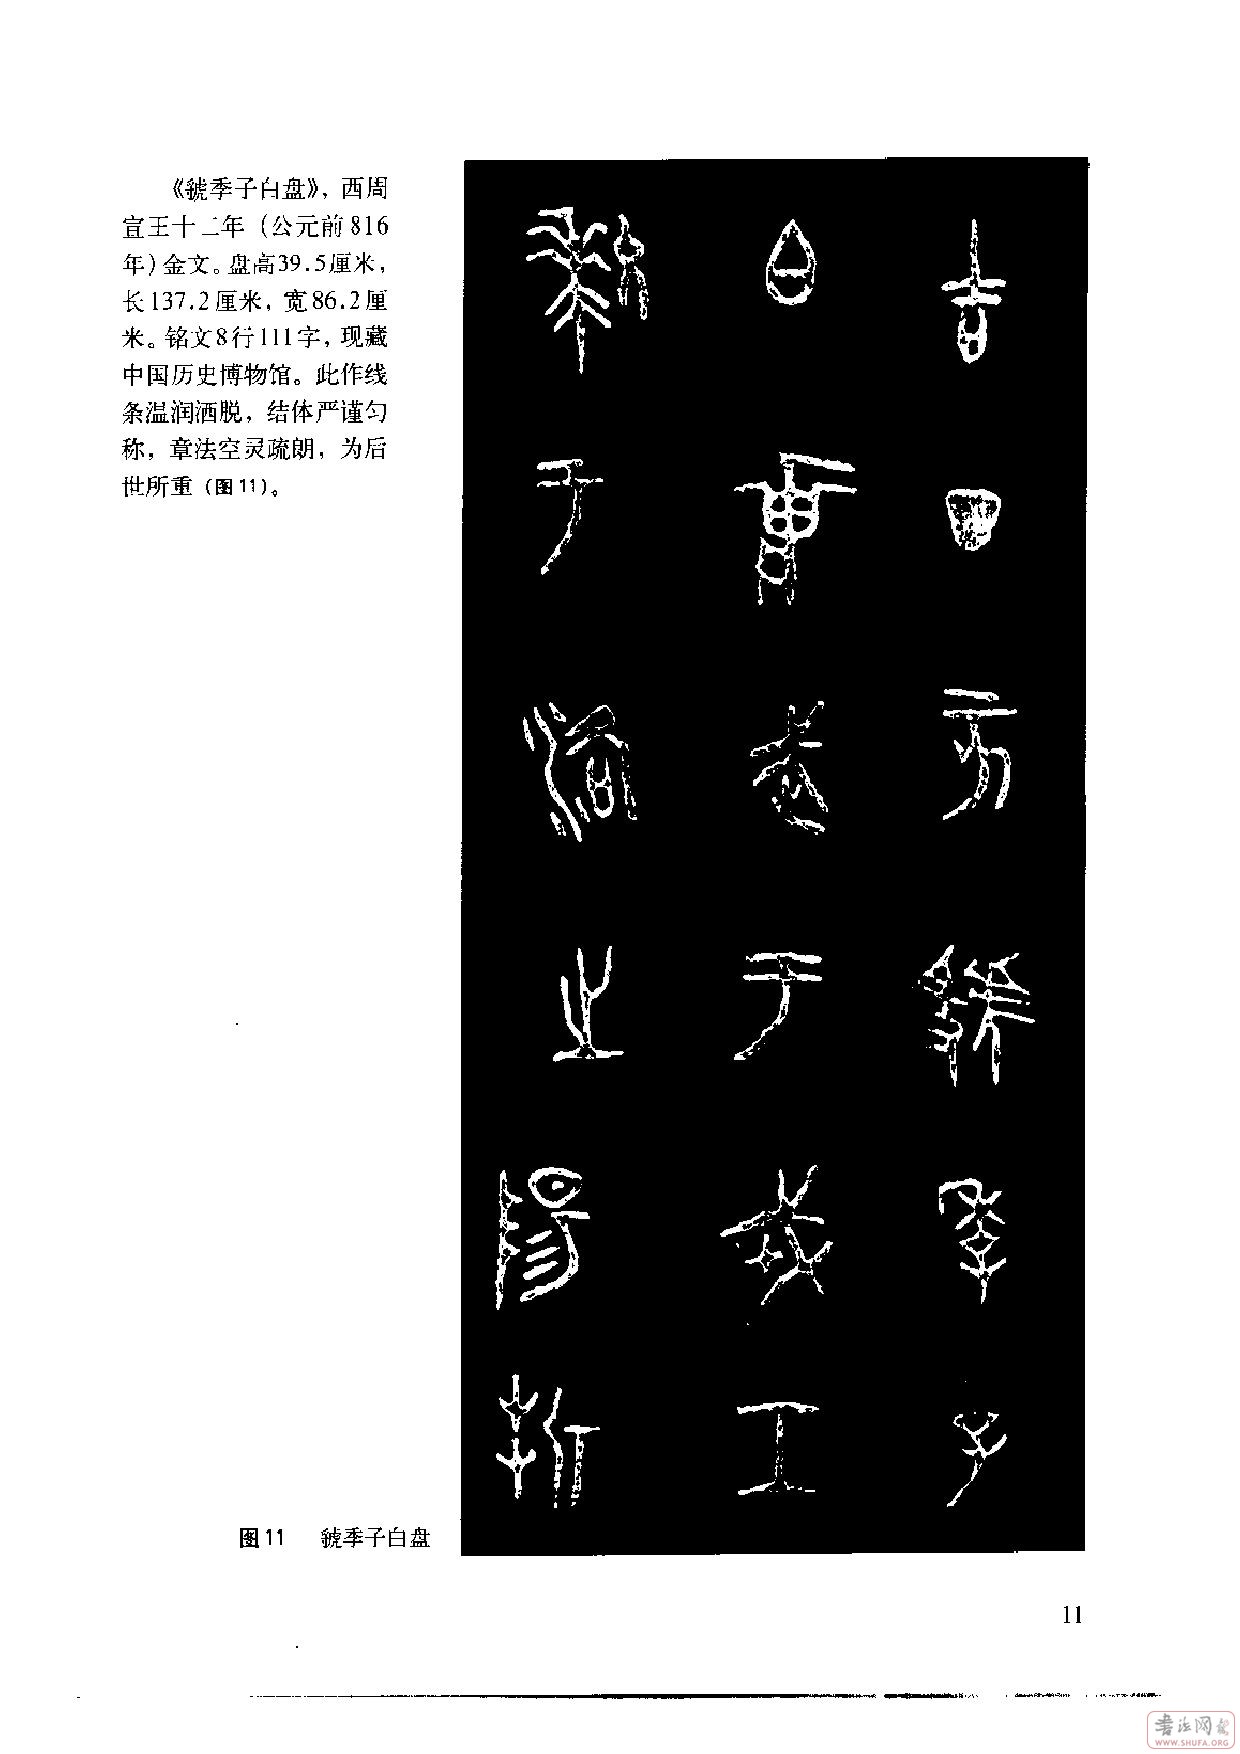 《虢季子白盘》，西周
宣王十二年（公元前816
年）金文。盘高39.5厘米，
长137.2厘米，宽86.2厘
米。铭文8行111字，现藏
中国历史博物馆。此作线
条温润洒脱，结体严谨匀
称，章法空灵疏朗，为后
世所重（图11）。
吉丁亥虢季子
白武于戎工
于洛之陽折
图11 虢季子白盘
11
书法网
WWW.SHUFA.ORG